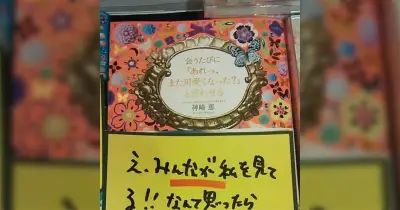 会うたびに
「あれっ、
また可愛くなった?」
と言わせる
神崎 恵
え、みんなが私を見て
る!!なんて思ったら